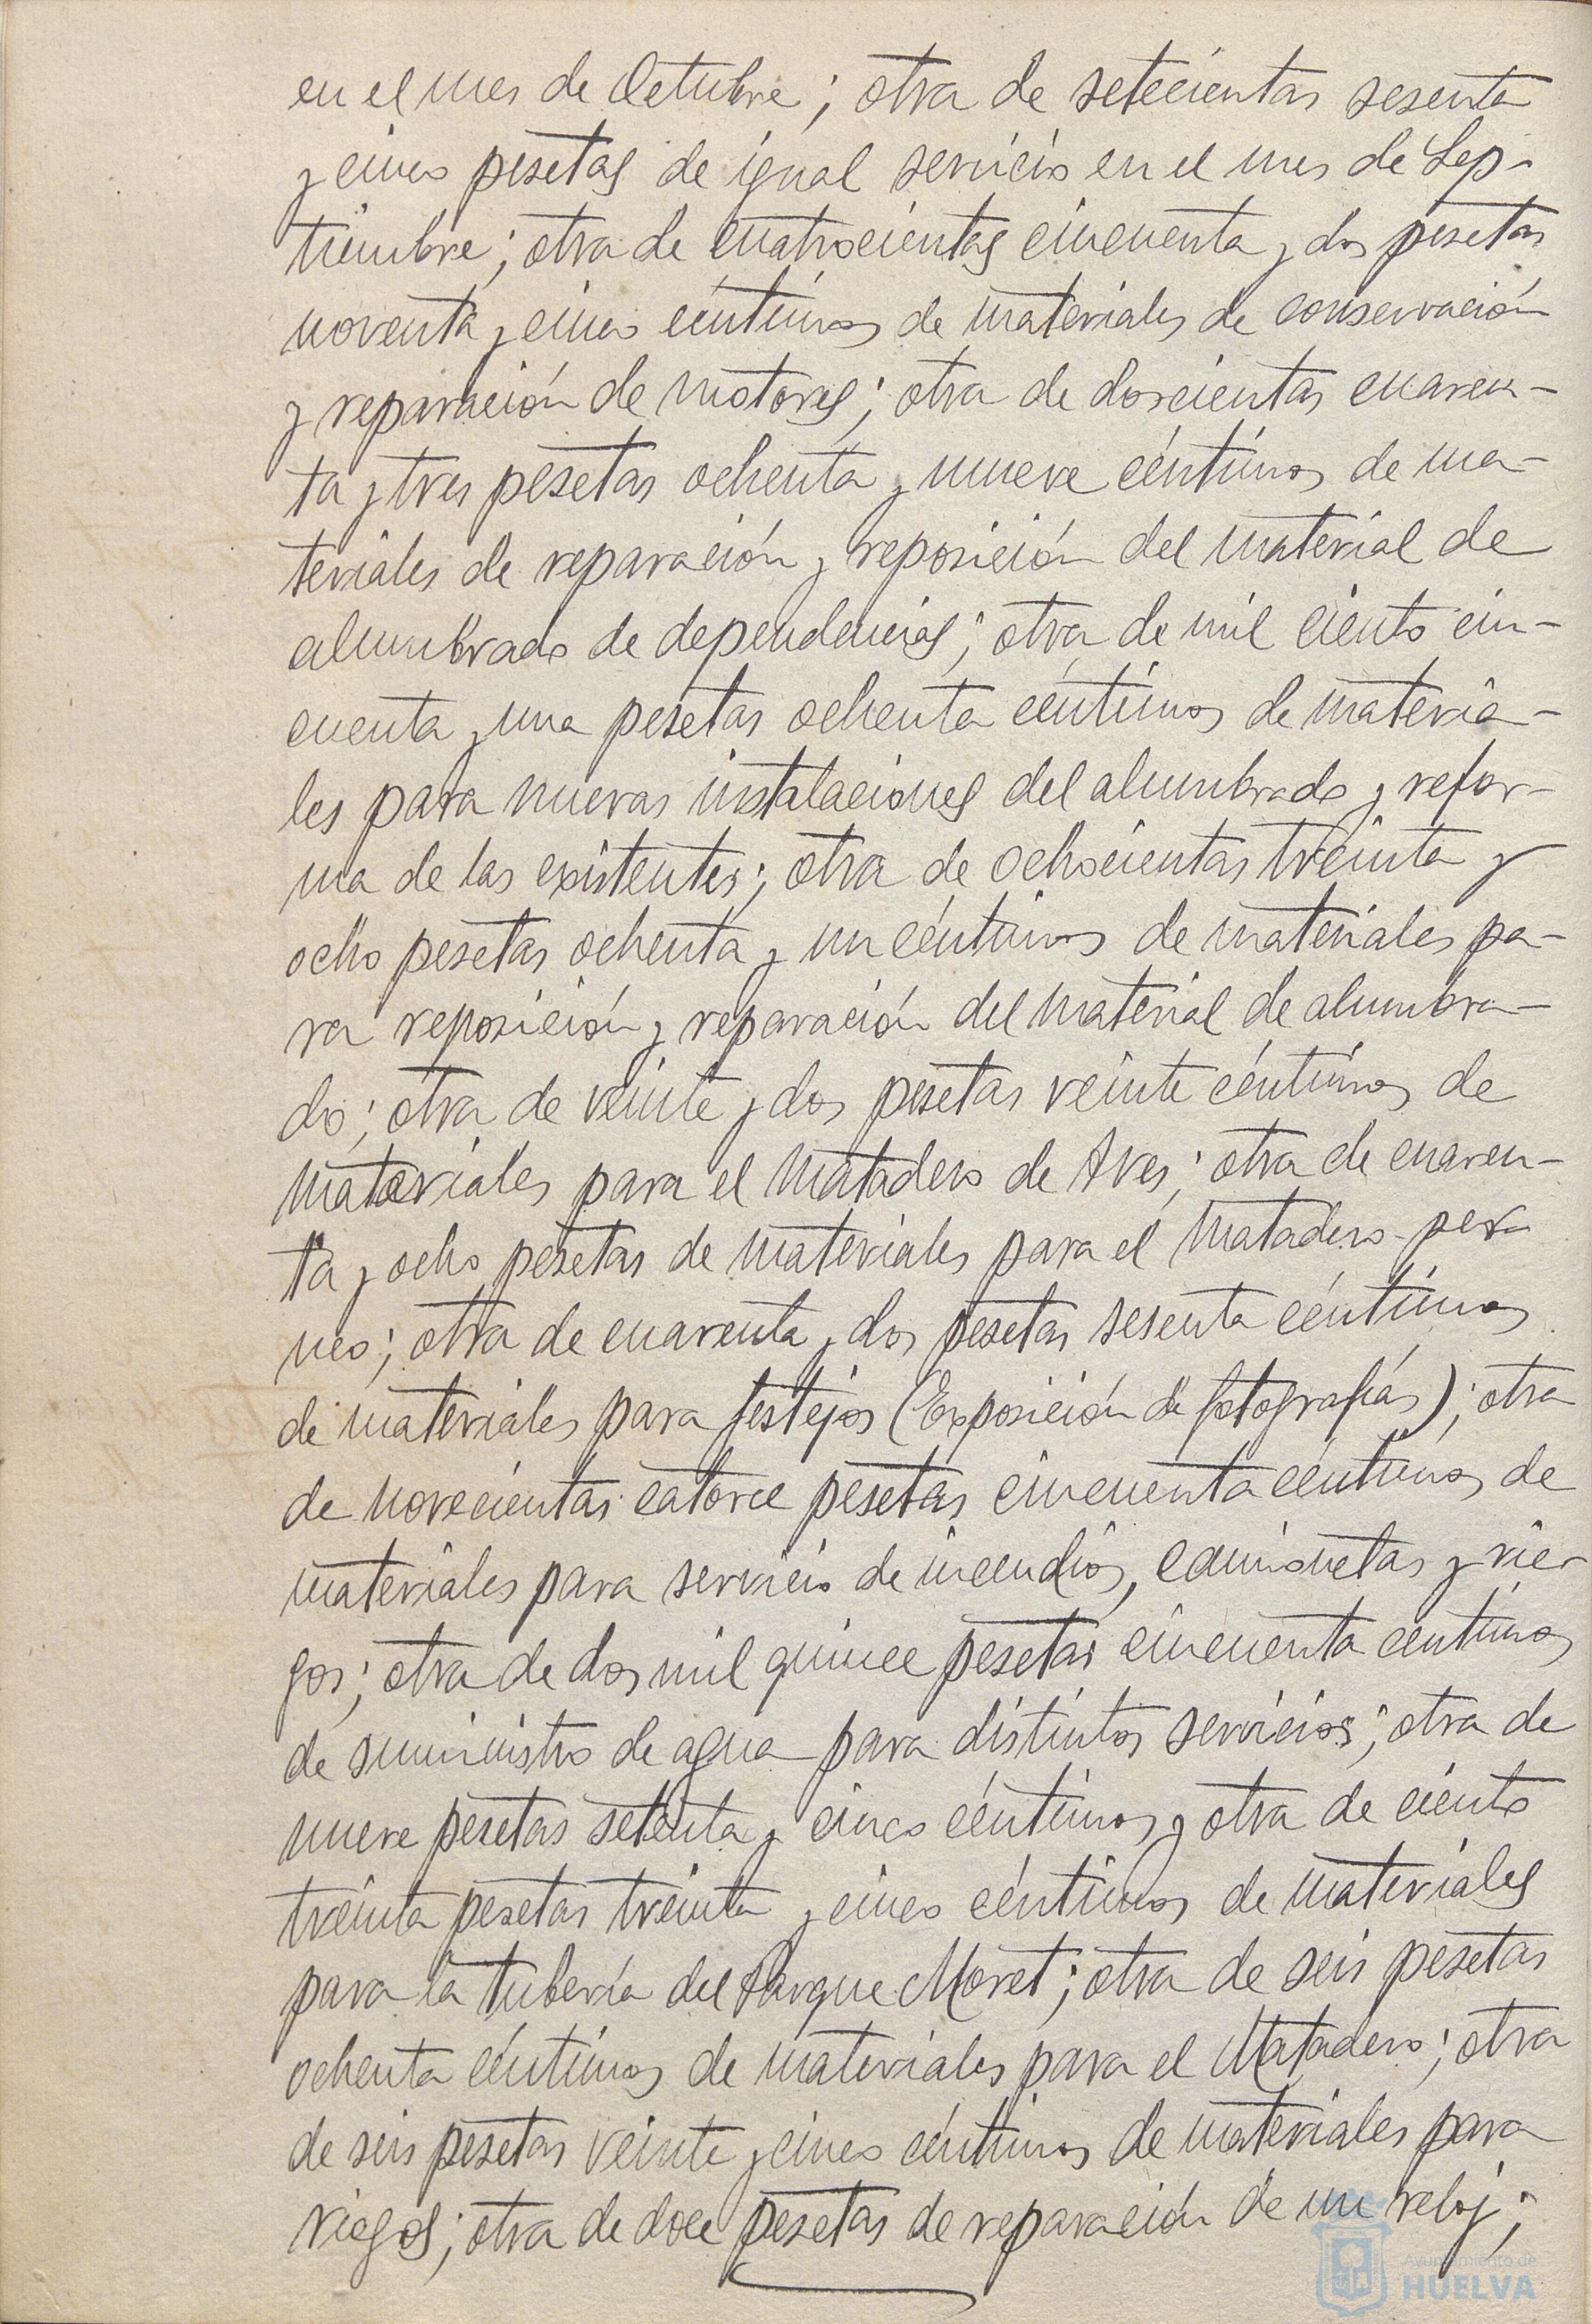 en el mes de Octubre; otra de setecientas sesenta
y cinco pesetas de igual servicio en el mes de Sep-
tiembre; otra de cuatrocientas cincuenta y dos pesetas
noventa y cinco céntimos de materiales de conservación
y reparación de motores; otra de doscientas cuaren-
ta y tres pesetas ochenta y nueve céntimos de ma-
teriales de reparación y reposición del material de
alumbrado de dependencias; otra de mil ciento cin-
cuenta y una pesetas ochenta céntimos de materia-
les para nuevas instalaciones del alumbrado y refor-
ma de las existentes; otra de ochocientas treinta y
ocho pesetas ochenta y un céntimos de materiales pa-
ra reposición y reparación del material de alumbra-
do; otra de veinte y dos pesetas veinte céntimos de
materiales para el Matadero de Aves; otra de cuaren-
ta y ocho pesetas de materiales para el Matadero per
neo; otra de cuarenta y dos pesetas sesenta céntimos
de materiales para festejos (Exposición de fotografías); otra
de novecientas catorce pesetas cincuenta céntimos de
materiales para servicio de incendios, camionetas y rie-
gos; otra de dos mil quince pesetas cincuenta céntimos
de suministro de agua para distintos servicios; otra de
nueve pesetas setenta y cinco céntimos y otra de ciento
treinta pesetas treinta y cinco céntimos de materiales
para la tubería del Parque Moret; otra de seis pesetas
ochenta céntimos de materiales para el Matadero; otra
de seis pesetas veinte y cinco céntimos de materiales para
riegos; otra de doce pesetas de reparación de un reloj;
Ayuntamiento de
HUELVA